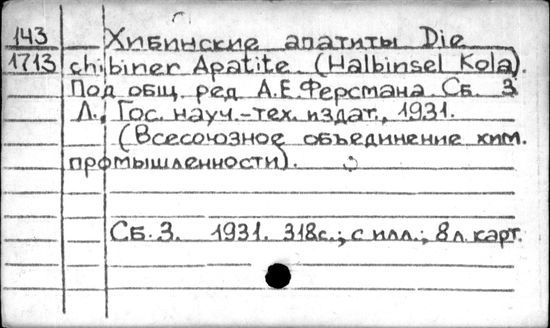 143 Хибинские апатиты Die
1713 chibiner Apatite (Halbinsel Kola).
Под общ. ред А.Е.Ферсмана Сб. 3
Л., Гос. науч.-тех. издат., 1931.
(Всесоюзное объединение хим.
промышленности).
Сб. 3. 1931. 318с.; с илл.; 8л. карт.